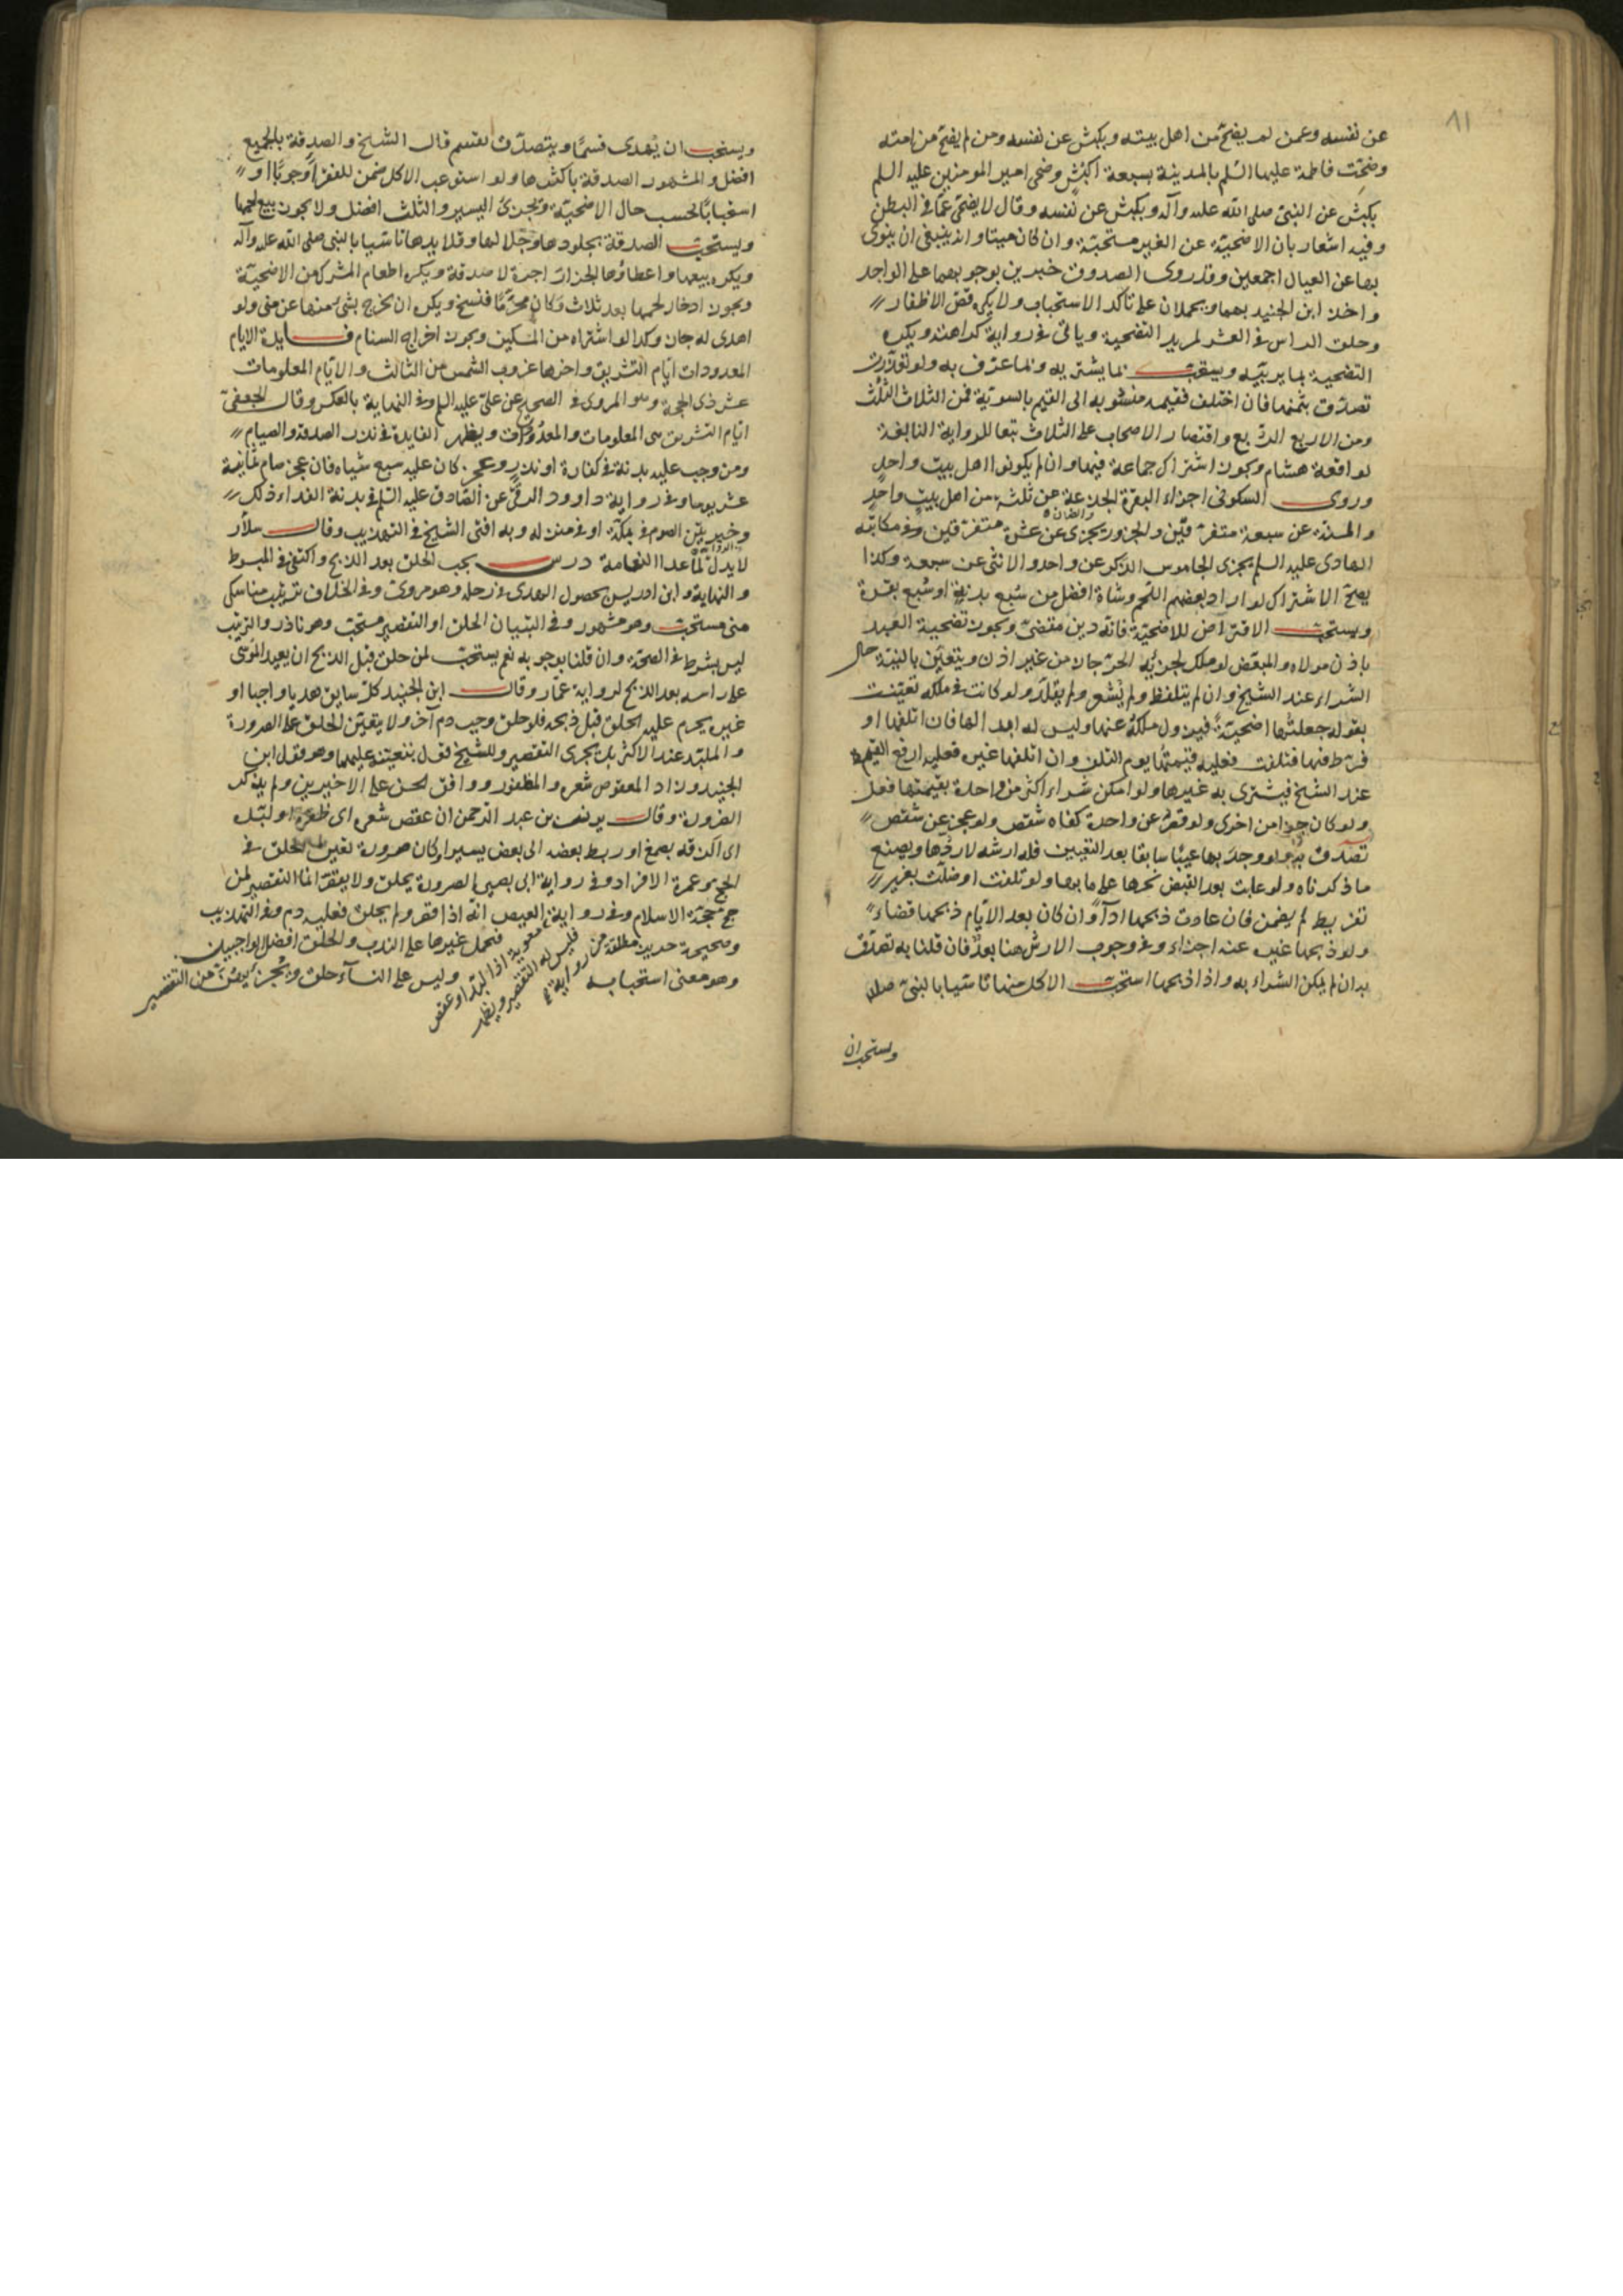 ٨١
عن نفسه وعمن لم يضح من اهل بيته وبكبش عن نفسه ومن لم يضح من امته
وضحّت فاطمة عليها السلم بالمدينة بسبعة اكبش وضحى امير المومنين عليه السلم
بكبش عن النبي صلى الله عليه وآله وبكبش عن نفسه وقال لا يضحى عما في البطن
وفيه اشعار بان الاضحية عن الغير مستحبة وان كان ميتا وانه ينبغي ان ينوى
بها عن العيال اجمعين وقد روى الصدوق خبرين بوجوبهما على الواجد
واخذ ابن الجنيد بهما ويحملان على تأكد الاستحباب ولا يكره قص الاظفار
وحلق الراس في العشر لمريد التضحية وياتي في رواية كراهته ويكره
التضحية بما يربيه ويستحب بما يشتريه وبما عرف به ولو تعذرت
تصدق بثمنها فان اختلف فقيمة منسوبة الى القيم بالسوية فمن الثلاث الثلث
ومن الاربع الربع واقتصار الاصحاب على الثلاث تبعا للرواية النابعة
لواقعة هشام ويجوز اشتراك جماعة فيها وان لم يكونوا اهل بيت واحد
وروى السكوني اجزاء البقرة الجذعة عن ثلثة من اهل بيت واحد
والمسنة عن سبعة متفرقين والجزور يجزى عن عشرة متفرقين وفي مكاتبة
الهادى عليه السلم يجزى الجاموس الذكر عن واحد والانثى عن سبعة وكذا
يصح الاشتراك لو اراد بعضهم اللحم وشاة افضل من سُبع بدنة او سُبع بقرة
ويستحب الاقتراض للاضحية فانه دين مقضى ويجوز تضحية العبد
باذن مولاه والمبعض لو ملك بجزئه الحر جاز من غير اذن ويتعين بالنية حال
الشراء عند الشيخ وان لم يتلفظ ولم يشعر ولم يقلد ولو كانت في ملكه تعينت
بقوله جعلتها اضحية فيزول ملكه عنها وليس له ابدالها فان اتلفها او
فرط فيها فتلفت فعليه قيمتها يوم التلف وان اتلفها غيره فعليه ارفع القيم
عند الشيخ فيشترى به غيرها ولو امكن شراء اكثر من واحدة بقيمتها فعل
ولو كان جزءا من اخرى ولو قصر عن واحدة كفاه شقص ولو عجز عن شقص
تصدق به ولو وجد بها عيبا سابقا بعد التعيين فله ارشه لا ردها ويصنع
ما ذكرناه ولو عابت بعد القبض نحرها على ما بها ولو تلفت او ضلت بغير
تفريط لم يضمن فان عادت ذبحها اداءً وان كان بعد الايام ذبحها قضاء
ولو ذبحها غيره عنه اجزاء وفي وجوب الارش هنا بعد فان قلنا به تصدق
به ان لم يمكن الشراء به واذا ذبحها استحب الاكل منها تاسيا بالنبي صلى الله
ويستحب ان
ويستحب ان يهدى قسما ويتصدق بقسم قال الشيخ والصدقة بالجميع
افضل والمشهور الصدقة باكثرها ولو استوعب الاكل ضمن للفقراء وجوبا او
استحبابا بحسب حال الاضحية ويجزى اليسير والثلث افضل ولا يجوز بيع لحمها
ويستحب الصدقة بجلودها وجلالها وقلايدها تاسيا بالنبي صلى الله عليه وآله
ويكره بيعها واعطاؤها الجزار اجرة لا صدقة ويكره اطعام المشرك من الاضحية
ويجوز ادخار لحمها بعد ثلاث وكان محرما فنسخ ويكره ان يخرج بشى منها عن منى ولو
اهدى له جاز وكذا لو اشتراه من المسكين ويجوز اخراج السنام فايدة الايام
المعدودات ايام التشريق واخرها غروب الشمس من الثالث والايام المعلومات
عشر ذى الحجة وهو المروى في الصحيح عن على عليه السلم وفي النهاية بالعكس وقال الجعفي
ايام التشريق هي المعلومات والمعدودات ويظهر الفايدة في نذر الصدقة والصيام
ومن وجب عليه بدنة في كفارة او نذر وعجز كان عليه سبع شياه فان عجز صام ثمانية
عشر يوما وفي رواية داوود الرقى عن الصادق عليه السلم في بدنة الفداء ذلك
وخير بين الصوم في مكة او في منزله وبه افتى الشيخ في التهذيب وقال سلار
لا بدل لما عدا النعامة درس يجب الحلق بعد الذبح واكتفى في المبسوط
والنهاية وابن ادريس بحصول الهدى في رحله وهو مروى وفي الخلاف ترتيب مناسك
منى مستحب وهو مشهور وفي التبيان الحلق او التقصير مستحب وهو نادر والترتيب
ليس بشرط في الصحة وان قلنا بوجوبه نعم يستحب لمن حلق قبل الذبح ان يعيد الموسى
على راسه بعد الذبح لرواية عمار وقال ابن الجنيد كل سايق هديا واجبا او
غيره يحرم عليه الحلق قبل ذبحه فلو حلق وجب دم آخر ولا يتعين الحلق على الصرورة
والملبد عند الاكثر بل يجزى التقصير وللشيخ قول بتعينه عليهما وهو قول ابن
الجنيد وزاد المعقوص شعره والمظفور ووافق الحسن على الاخيرين ولم يذكر
الصرورة وقال يونس بن عبد الرحمن ان عقص شعره اى ظفره او لبده
اى الزقه بصمغ او ربط بعضه الى بعض بسير او كان صرورة تعين الحلق في
الحج وعمرة الافراد وفي رواية ابى بصير الصرورة يحلق ولا يقصر انما التقصير لمن
حج حجة الاسلام وفي رواية العيص انه اذا قصر ولم يحلق فعليه دم وفي التهذيب
وصحيحة حريز مطلقة فتحمل غيرها على الندب والحلق افضل الواجبين
وهو معنى استحبابه وليس على النسآء حلق ويجزيهن من التقصير
من رواية معوية اذا لبد او عقص
فليس له التقصير